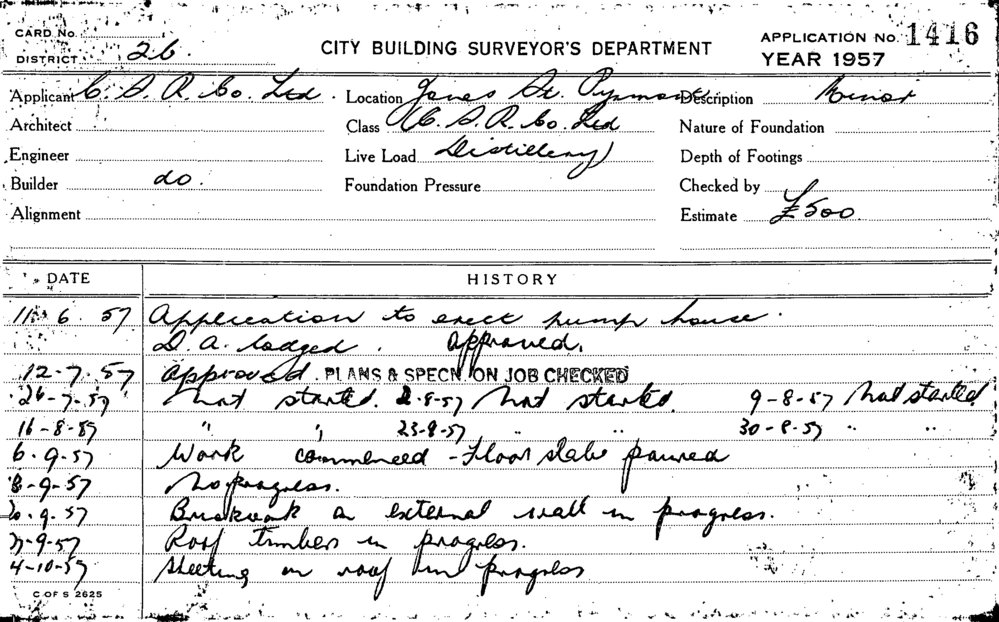 CARD No.
DISTRICT 26
CITY BUILDING SURVEYOR'S DEPARTMENT
APPLICATION No. 1416
YEAR 1957
Applicant C. S. R. Co. Ltd. Location Jones St. Pyrmont Description Minor
Architect Class C. S. R. Co. Ltd Nature of Foundation
Engineer Live Load Distillery) Depth of Footings
Builder do. Foundation Pressure Checked by
Alignment Estimate £500.
DATE HISTORY
11. 6. 57 Application to erect pump house.
D. A. lodged. Approved.
12-7-57 Approved. PLANS & SPECN. ON JOB CHECKED
26-7-57 Not started. 2-8-57 Not started. 9-8-57 Not started
16-8-57 " " 23-8-57 " " 30-8-57 " "
6-9-57 Work commenced - Floor slab poured
-9-57 No progress.
-9-57 Brickwork on external wall in progress.
-9-57 Roof timbers in progress.
4-10-57 Sheeting on roof in progress
C OF S 2625